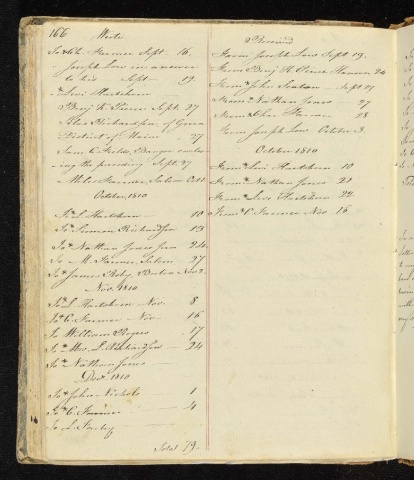 166 Wrote
To Ch. Farmer Sept. 16.
Joseph Low in answer
to his Sept 22
Levi Hutchins
Benj. K. Pierce Sept. 27
Silas Richardson of
District of Maine 27
Sam. C. Fields, Bangor
ing the preceding Sept. 27
Miles Farmer, Salem Oct 1
October 1810
To L. Hutchins 10
To Simeon Richardson 13
To Nathan Jones jun 24
To M. Farmer, Salem 27
To James Boby Nov 2
Nov. 1810
To L. Hutchins Nov. 8
To C. Farmer Nov. 16
To William Rogers 17
To Mrs. L. Richardson 24
To Nathan Jones
Decr. 1810
To John Nichols 1
To C. Farmer 4
To L.
Total 79.
Received
From Joseph Low Sept 19.
From Benj K Pierce 24
From John Sept 27
From Nathan Jones 27
From Chs. Farmer 28
From Joseph Low October 3.
October 1810
From Levi Hutchins 10
From Nathan Jones 21
From Levi Hutchins 22
From C. Farmer Nov. 16